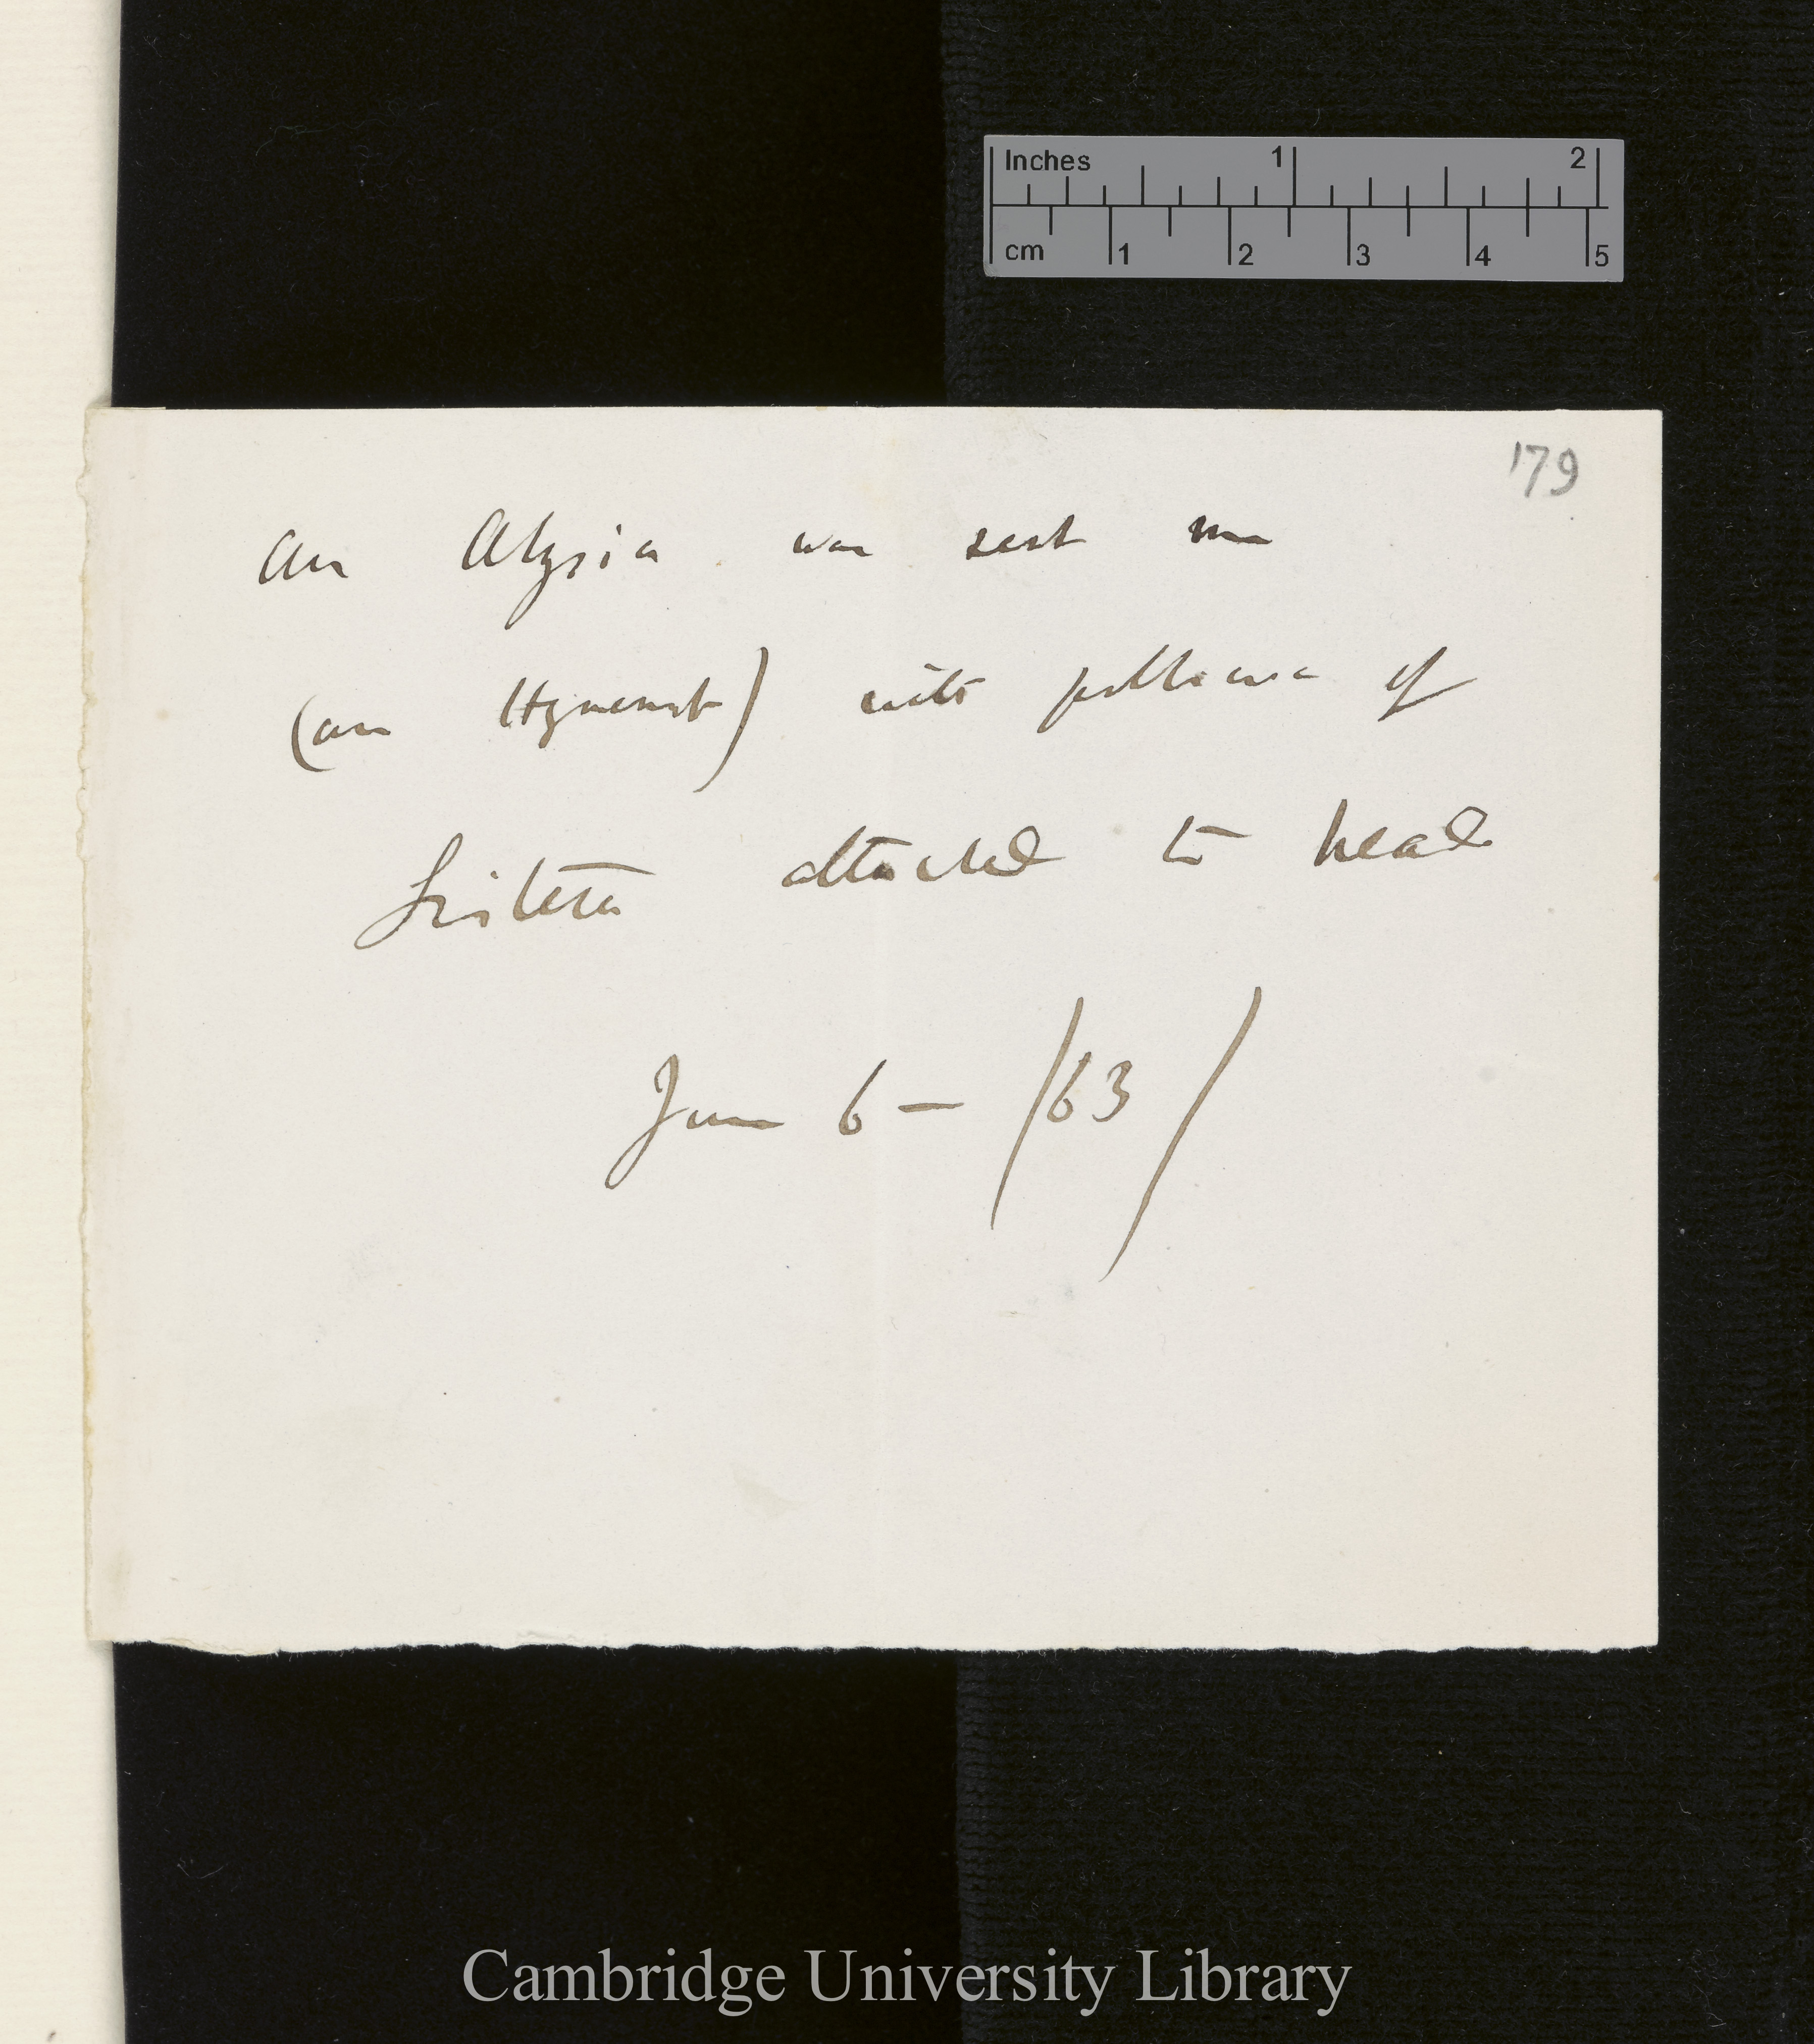 Inches 1 2
cm 1 2 3 4 5
179
An Alysia was sent me
(an Hymenopt) with pollinia of
Listera attached to head
June 6 — /63/
Cambridge University Library